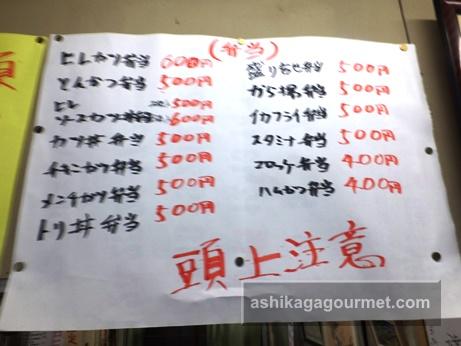 (弁当)
ヒレカツ弁当 600円
とんかつ弁当 500円
ヒレ
ソースカツ弁当 600円
500円
カツ丼弁当 500円
チキンカツ弁当 500円
メンチカツ弁当 500円
トリ丼弁当 500円
盛り合せ弁当 500円
から揚弁当 500円
イカフライ弁当 500円
スタミナ弁当 500円
コロッケ弁当 400円
ハムカツ弁当 400円
頭上注意
ashikagagourmet.com